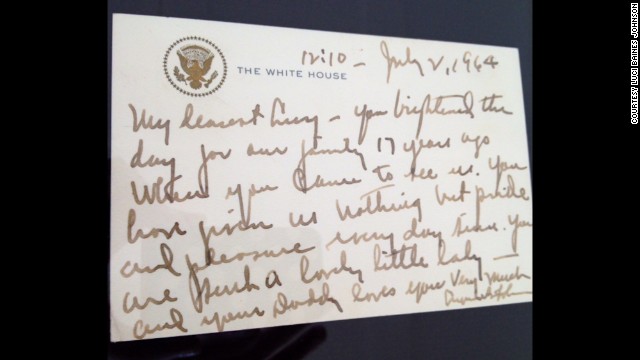 12:10 - July 2, 1964
THE WHITE HOUSE
My dearest Lucy - you brightened the
day for our family 17 years ago
when you came to see us. You
have given us nothing but pride
and pleasure every day since. You
are such a lovely little lady -
and your Daddy loves you very much
COURTESY LUCI BAINES JOHNSON